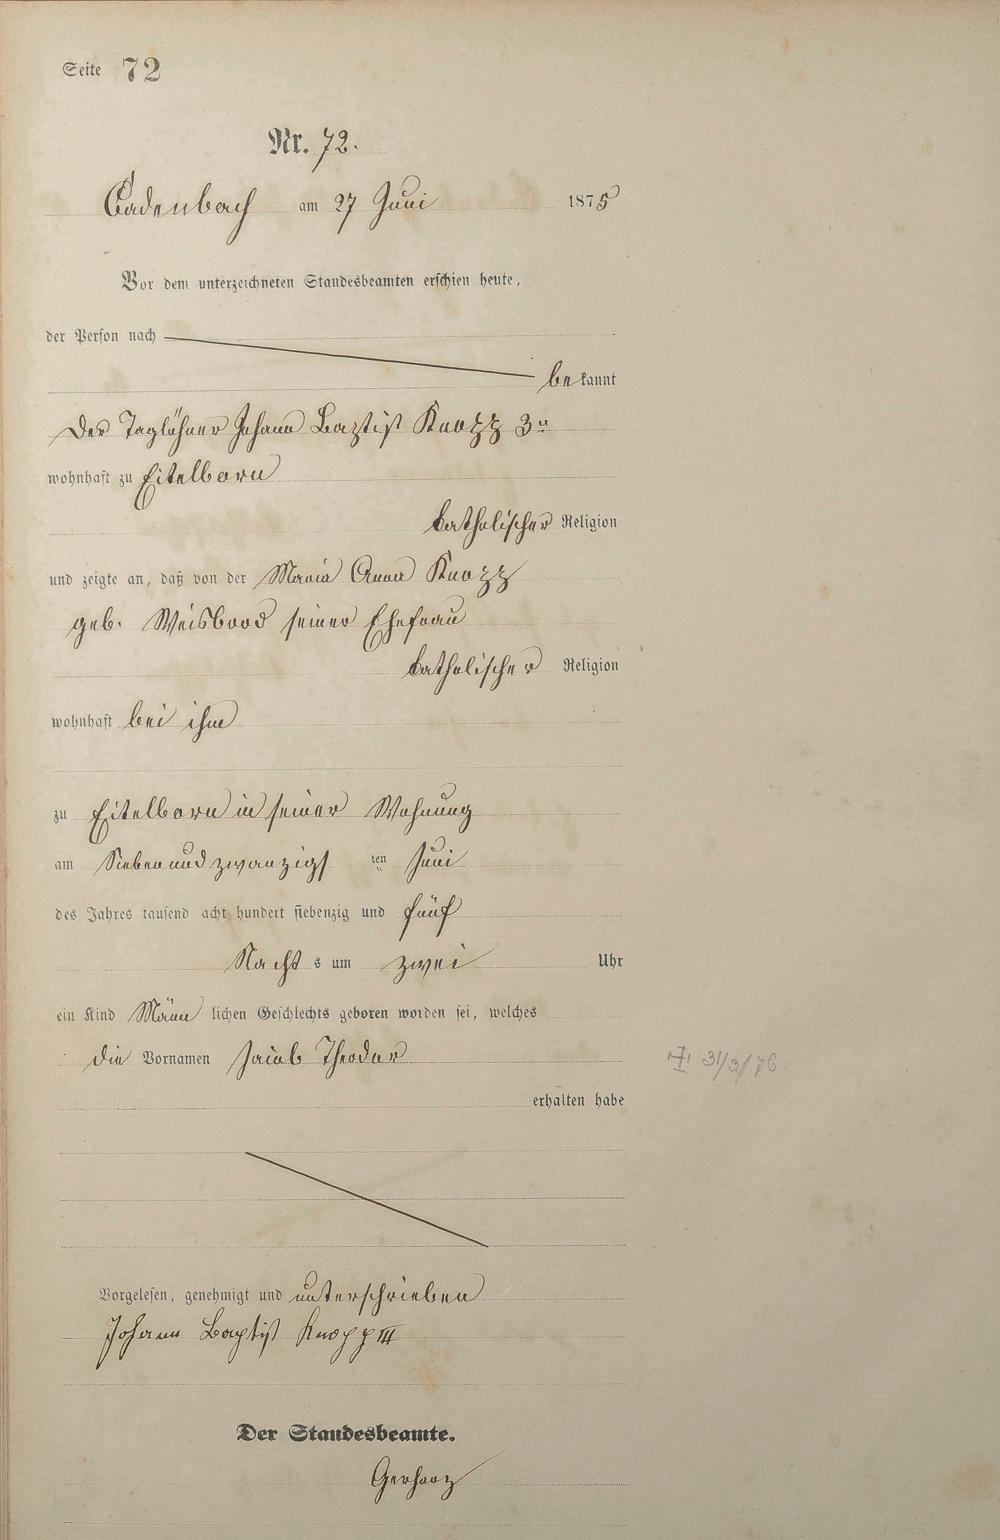 Seite 72
Nr. 72.
Cadenbach am 27 Juni 1875
Vor dem unterzeichneten Standesbeamten erschien heute,
der Person nach
bekannt
Der Taglöhner Johann Baptist Knopp 3r
wohnhaft zu Eitelborn
katholischer Religion
und zeigte an, daß von der Maria Anna Knopp
geb. Weisbrod seiner Ehefrau
katholischer Religion
wohnhaft bei ihm
zu Eitelborn in seiner Wohnung
am Siebenundzwanzigs ten Juni
des Jahres tausend acht hundert siebenzig und fünf
Nachts um zwei Uhr
ein Kind Männlichen Geschlechts geboren worden sei, welches
die Vornamen Jacob Theodor
erhalten habe
31/3/76.
Vorgelesen, genehmigt und unterschrieben
Johann Baptist Knopp III
Der Standesbeamte.
Gerharz